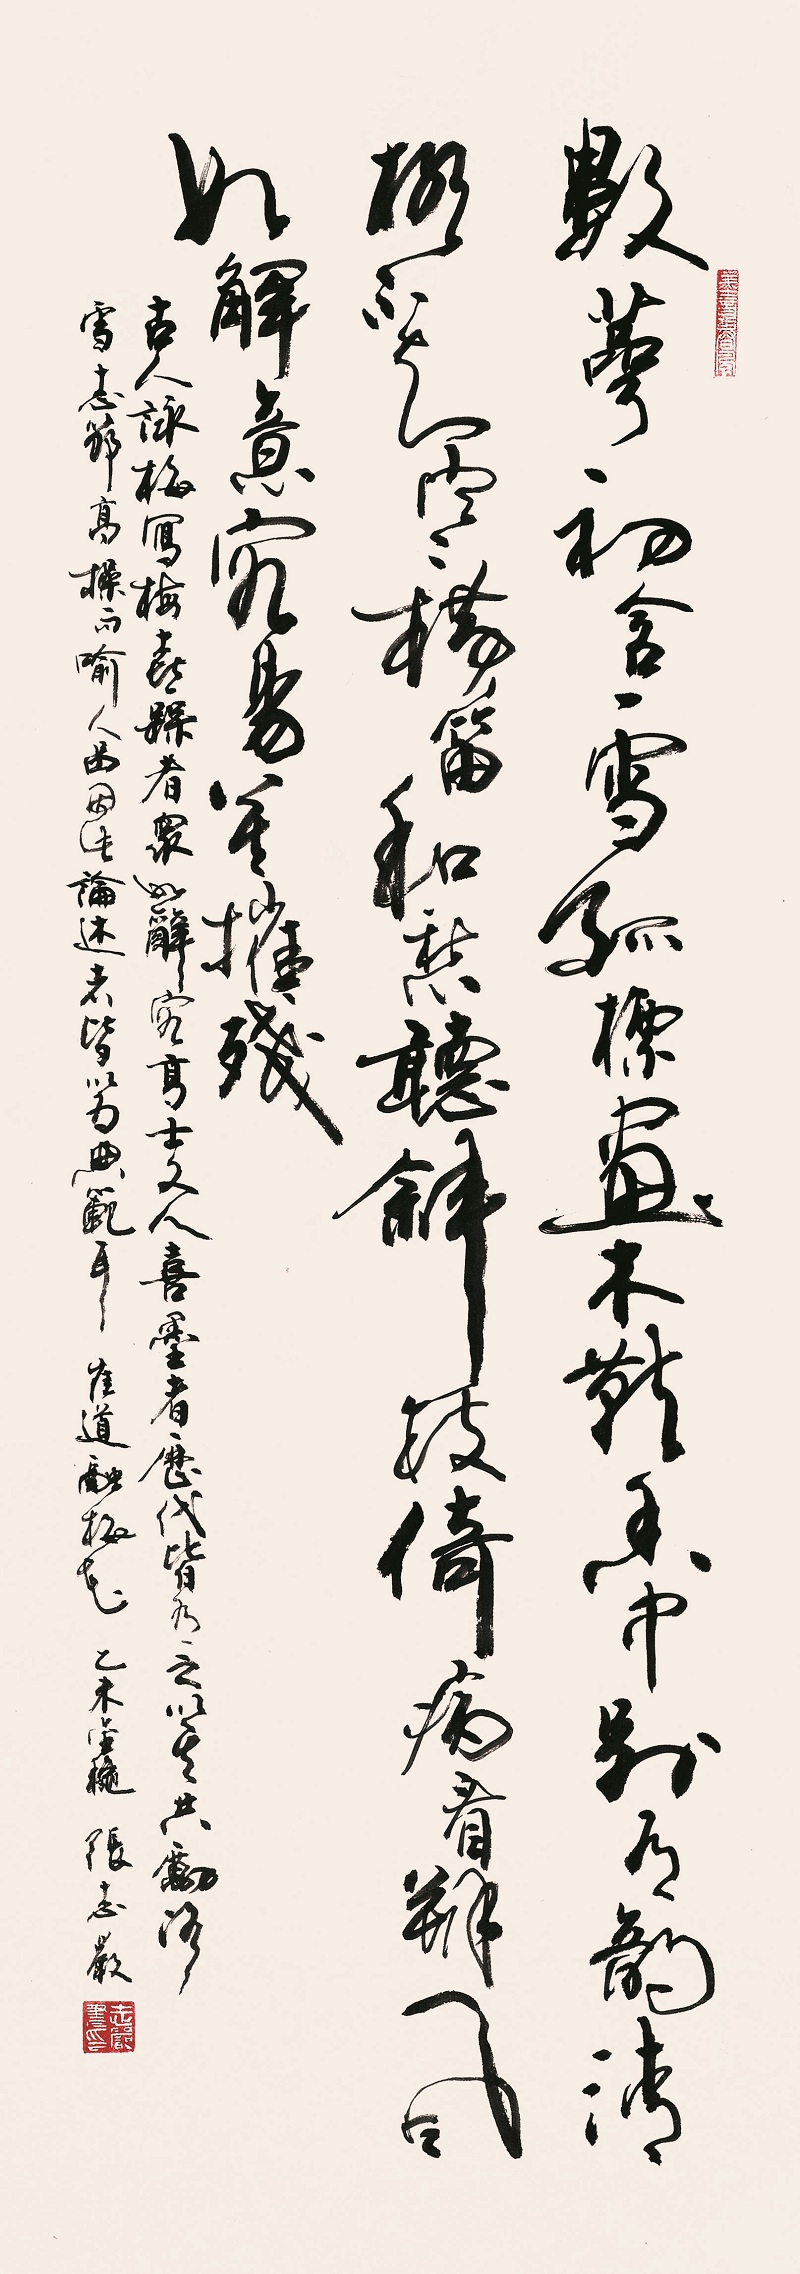 數萼初含雪孤標畫本難香中別有韻清
極不知寒橫笛和愁聽斜枝倚病看朔風
如解意容易莫摧殘
古人詠梅寫梅者眾如辭客高士文人喜墨者歷代皆有之以其共
雪志節高操而喻人品因此論述者皆以為典範耳 崔道融梅花 乙未金穐 張志嚴